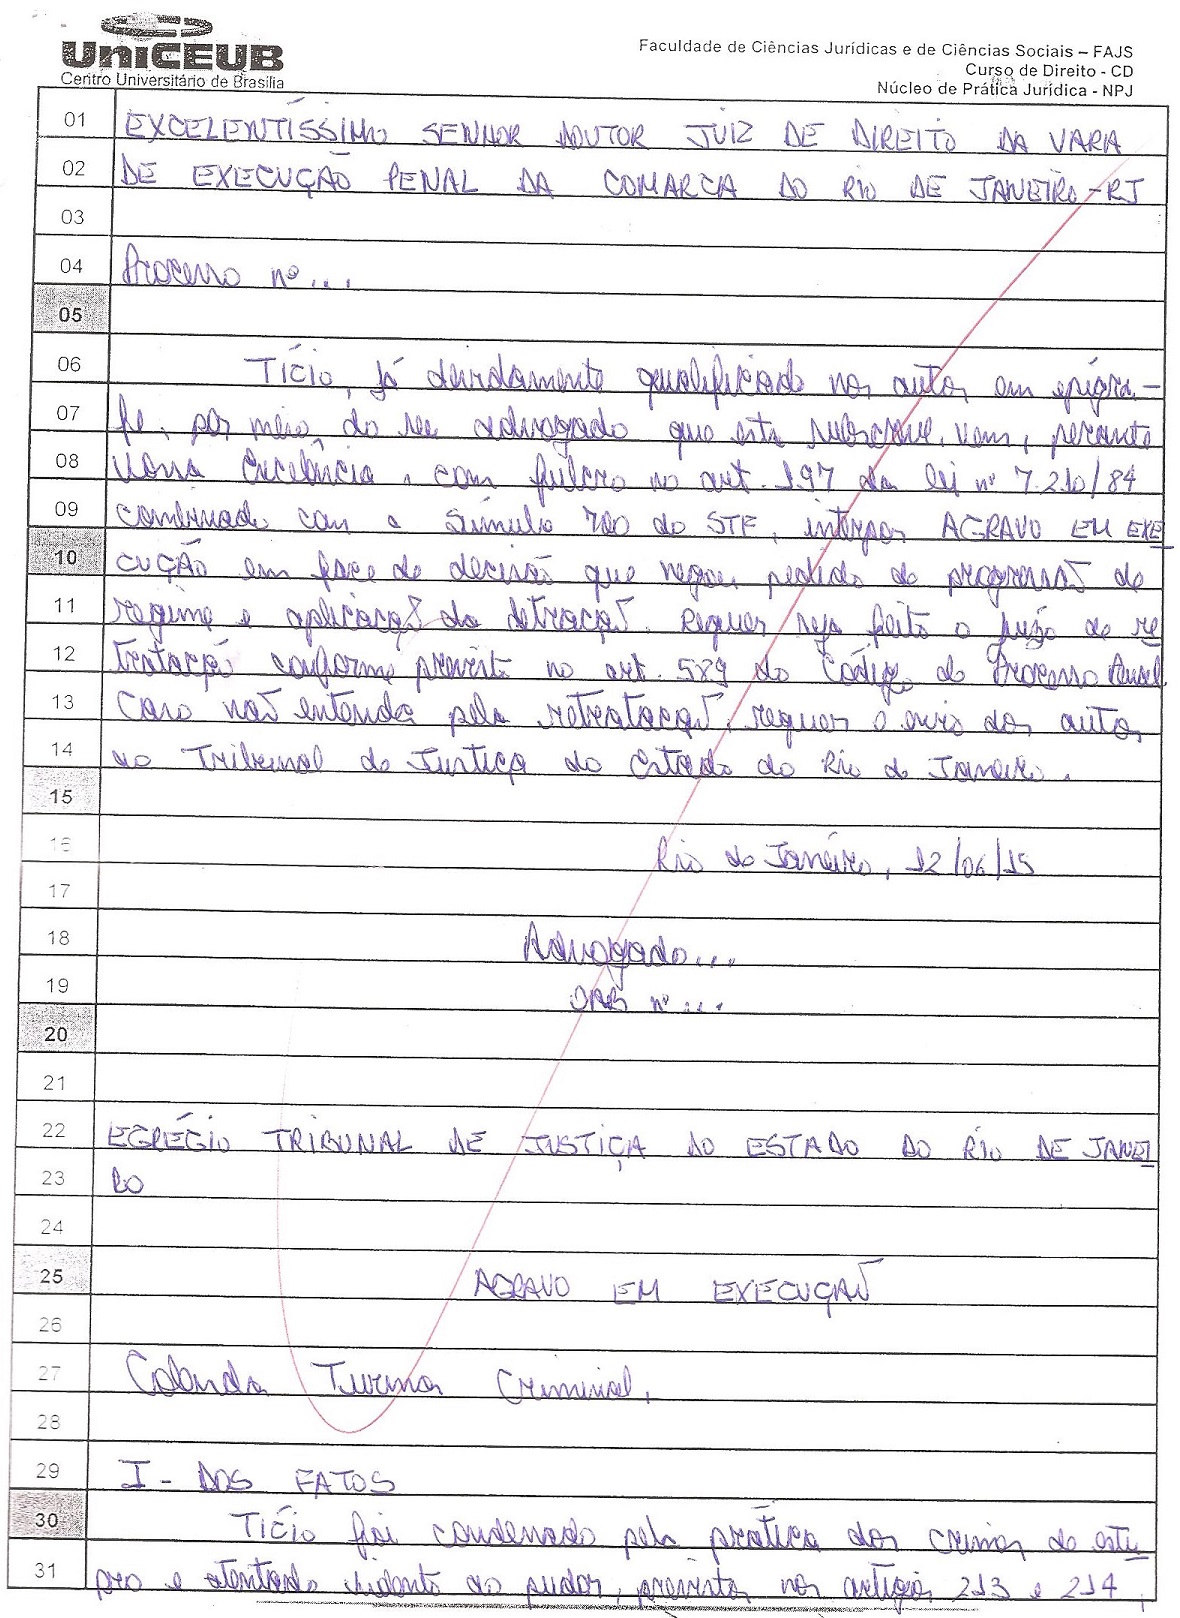 UniCEUB
Centro Universitário de Brasília
Faculdade de Ciências Jurídicas e de Ciências Sociais – FAJS
Curso de Direito - CD
Núcleo de Prática Jurídica - NPJ
01 EXCELENTÍSSIMO SENHOR DOUTOR JUIZ DE DIREITO DA VARA
02 DE EXECUÇÃO PENAL DA COMARCA DO RIO DE JANEIRO-RJ
03
04 Processo nº...
05
06 Tício, já devidamente qualificado nos autos em epígra-
07 fe, por meio do seu advogado que esta subscreve, vem, perante
08 Vossa Excelência, com fulcro no art. 197 da lei nº 7.210/84
09 combinado com a Súmula 700 do STF, interpor AGRAVO EM EXE
10 CUÇÃO em face de decisão que negou pedido de progressão de
11 regime e aplicação da detração. Requer seja feito o juízo de re
12 tratação conforme previsto no art. 589 do Código de Processo Penal
13 Caso não entenda pela retratação, requer o envio dos autos
14 ao Tribunal de Justiça do Estado do Rio de Janeiro.
15
16 Rio de Janeiro, 12/06/15
17
18 Advogado...
19 OAB nº...
20
21
22 EGRÉGIO TRIBUNAL DE JUSTIÇA DO ESTADO DO RIO DE JANEI
23 RO
24
25 AGRAVO EM EXECUÇÃO
26
27 Colenda Turma Criminal,
28
29 I - DOS FATOS
30 Tício foi condenado pela prática dos crimes de estu
31 pro e atentado violento ao pudor, previstos nos artigos 213 e 214,